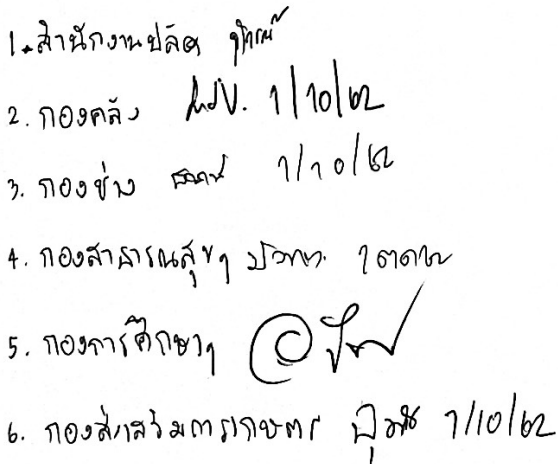 1. สำนักงานปลัด
2. กองคลัง 1/10/62
3. กองช่าง 1/10/62
4. กองสาธารณสุขฯ 1 ตค 62
5. กองการศึกษาฯ
6. กองส่งเสริมการเกษตร 1/10/62